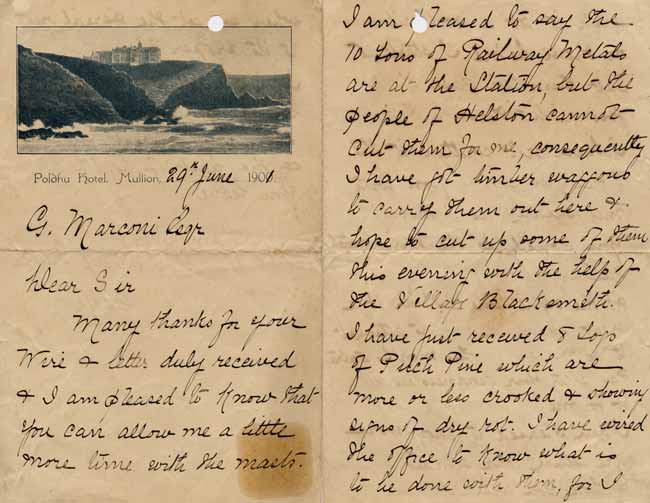 Poldhu Hotel, Mullion, 29th June 1901.
G. Marconi Esqr
Dear Sir
Many thanks for your
Wire & letter duly received
& I am pleased to know that
you can allow me a little
more time with the masts.
I am pleased to say the
70 tons of Railway Metals
are at the Station, but the
people of Helston cannot
cut them for me, consequently
I have got timber waggons
to carry them out here &
hope to cut up some of them
this evening with the help of
the Village Blacksmith.
I have just received 8 logs
of Pitch Pine which are
more or less crooked & showing
signs of dry rot. I have wired
the office to know what is
to be done with them, for I